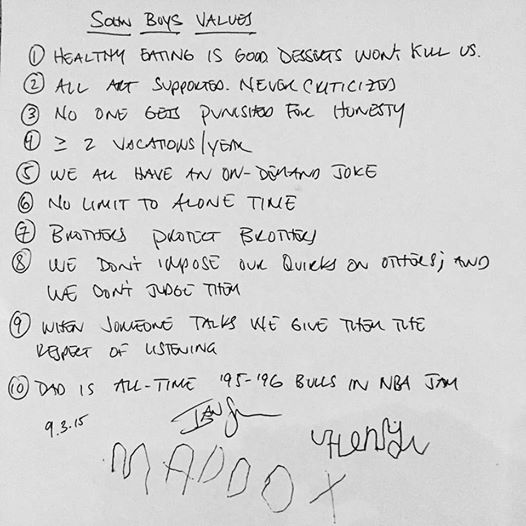 SOHN BOYS VALUES
① HEALTHY EATING IS GOOD. DESSERTS WON'T KILL US.
② ALL ART SUPPORTED. NEVER CRITICIZED
③ NO ONE GETS PUNISHED FOR HONESTY
④ ≥ 2 VACATIONS/YEAR
⑤ WE ALL HAVE AN ON-DEMAND JOKE
⑥ NO LIMIT TO ALONE TIME
⑦ BROTHERS PROTECT BROTHERS
⑧ WE DON'T IMPOSE OUR QUIRKS ON OTHERS; AND
WE DON'T JUDGE THEM
⑨ WHEN SOMEONE TALKS WE GIVE THEM THE
RESPECT OF LISTENING
⑩ DAD IS ALL-TIME '95-'96 BULLS IN NBA JAM
9.3.15
Henry
MADDOX